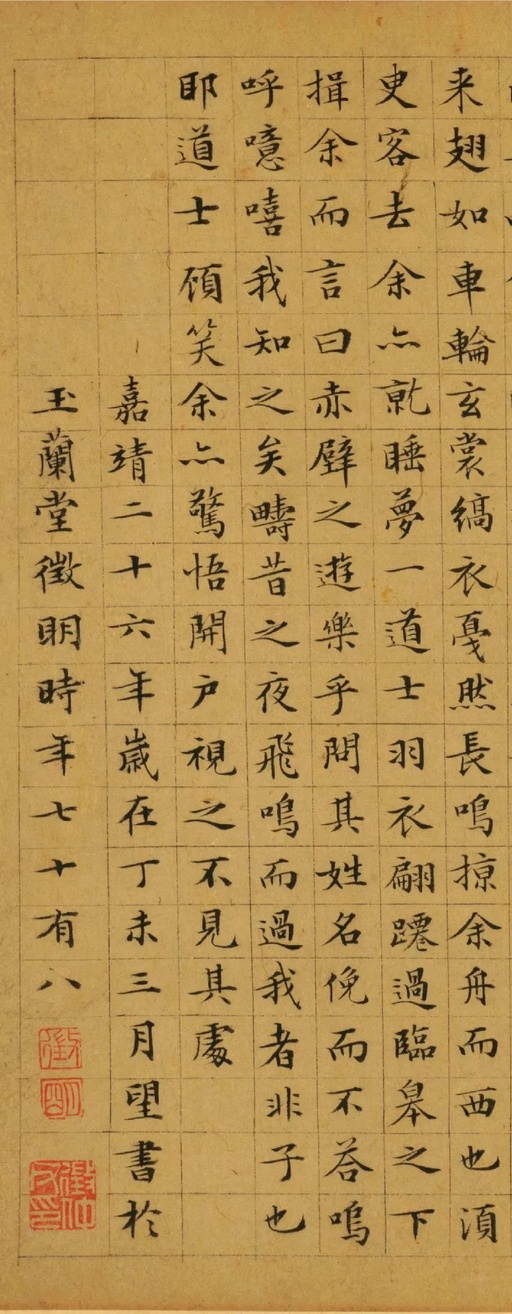 来翅如車輪玄裳縞衣戞然長鳴掠余舟而西也湏
叟客去余亦就睡夢一道士羽衣翩躚過臨皋之下
揖余而言曰赤壁之遊樂乎問其姓名俛而不荅嗚
呼噫嘻我知之矣疇昔之夜飛鳴而過我者非子也
耶道士顧笑余亦驚悟開戶視之不見其處
嘉靖二十六年歲在丁未三月望書於
玉蘭堂徵明時年七十有八
徵
明